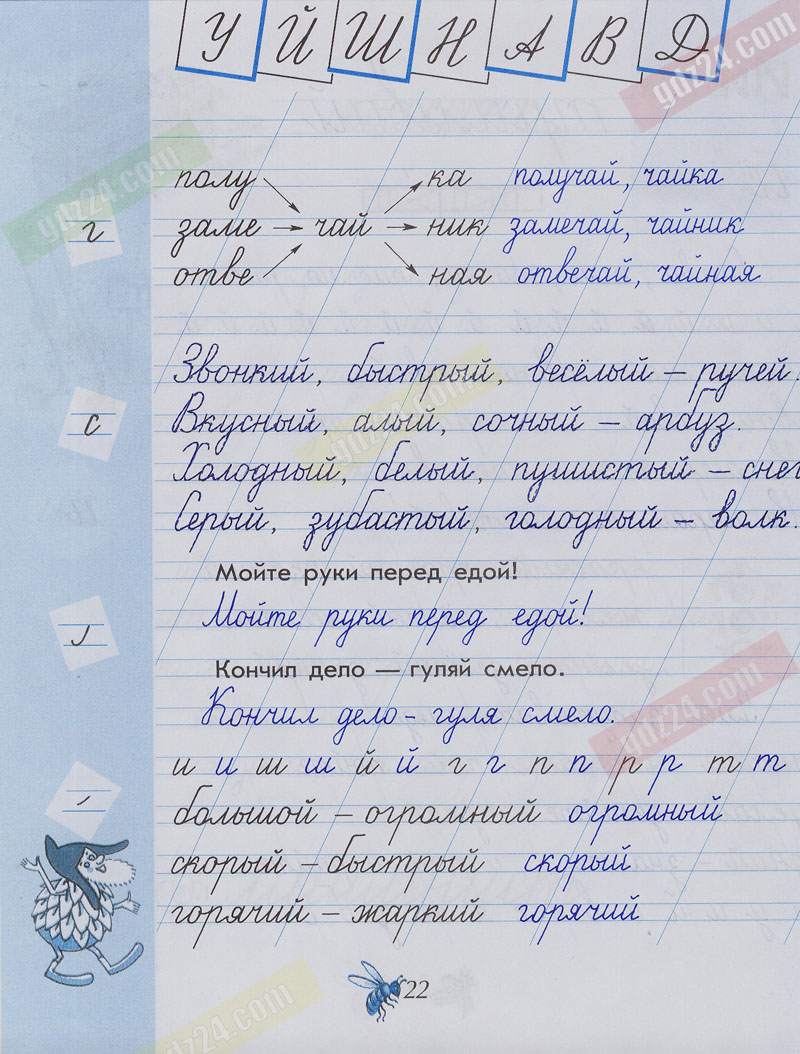 У Й Ш Н А В Д
gdz24.com
полу ка получай, чайка
gdz24.com
г заме чай ник замечай, чайник
отве ная отвечай, чайная
Звонкий, быстрый, весёлый – ручей.
с Вкусный, алый, сочный – арбуз.
gdz24.com
Холодный, белый, пушистый – снег
Серый, зубастый, голодный – волк.
Мойте руки перед едой!
Мойте руки перед едой!
Кончил дело — гуляй смело.
Кончил дело - гуля смело.
gdz24.com
и и ш ш й й г г п п р р т т
большой – огромный огромный
скорый – быстрый скорый
горячий – жаркий горячий
22
gdz24.com